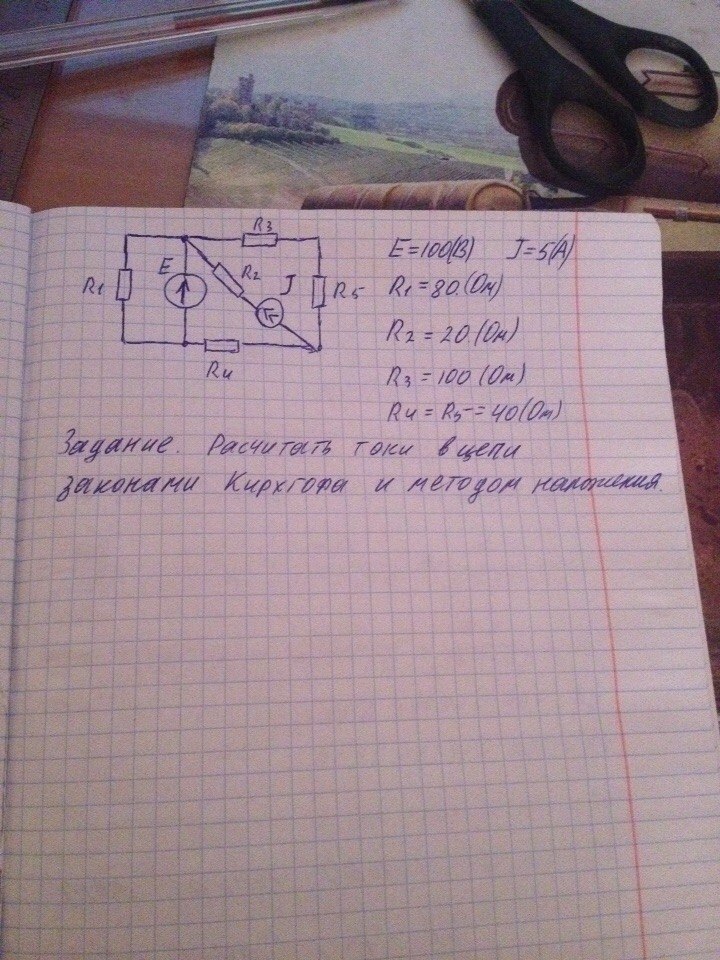 R3
E=100(В) J=5(А)
E
R2
J
R1
R5
R1=80.(Ом)
R2=20(Ом)
R4
R3=100(Ом)
R4=R5=40(Ом)
Задание. Расчитать токи в цепи
законами Кирхгофа и методом наложения.